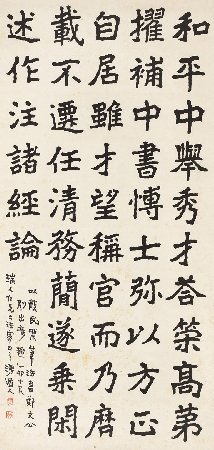 和平中舉秀才答策高第
擢補中書博士弥以方正
自居雖才望稱官而乃曆
載不遷任清務簡遂乘閑
述作注諸經論